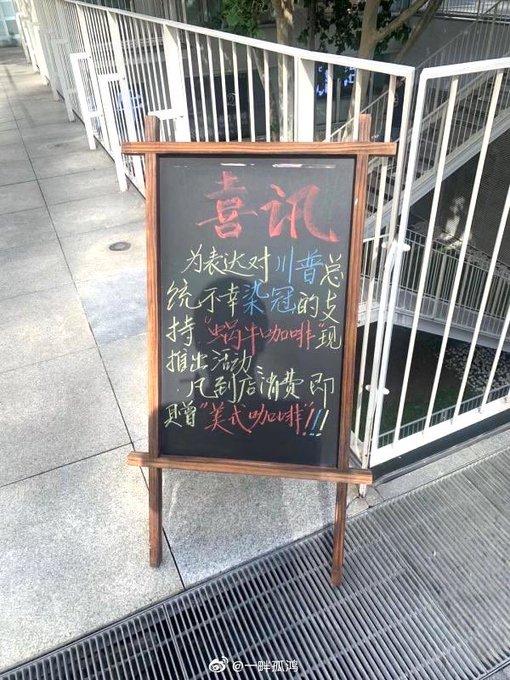 喜讯
为表达对川普总
统不幸染冠的支
持"蜗牛咖啡"现
推出活动:
凡到店消费即
赠"美式咖啡"!!!
@一畔孤鸿